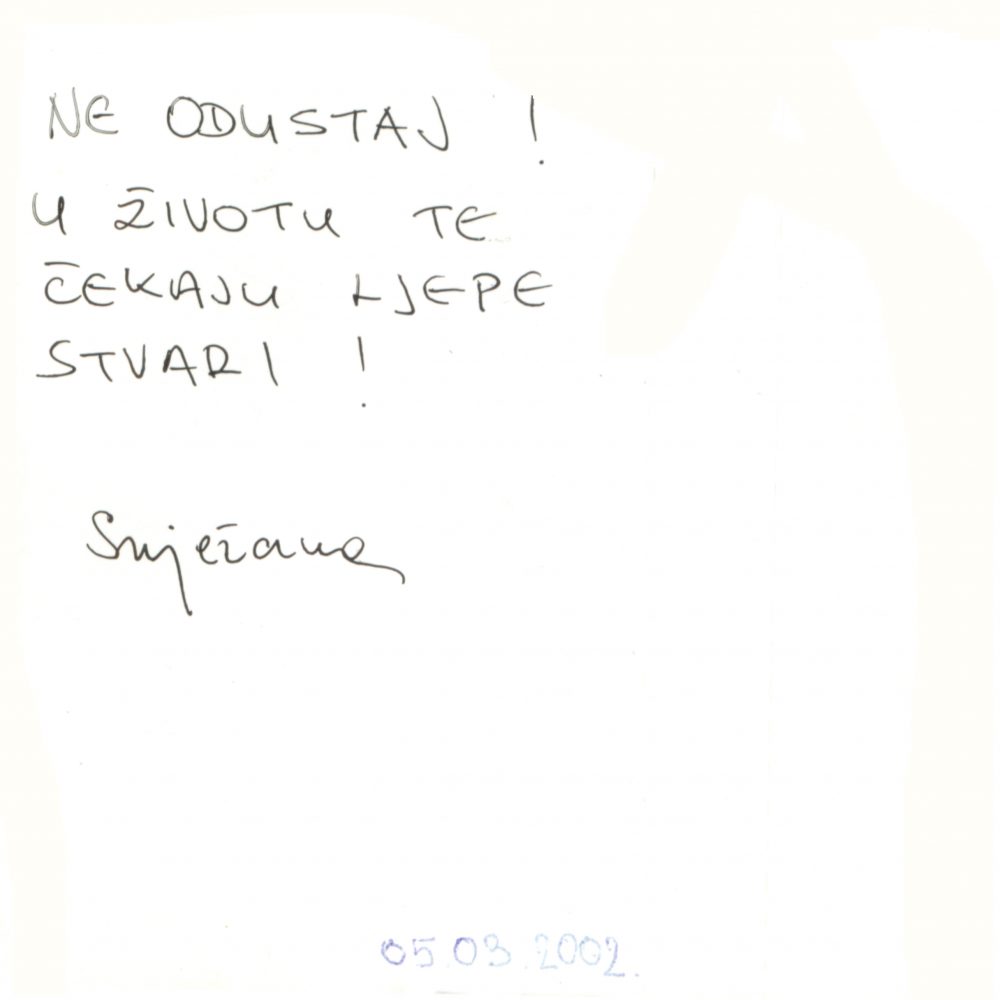 NE ODUSTAJ !
U ŽIVOTU TE
ČEKAJU LJEPE
STVARI !
Snježana
05.03.2002.